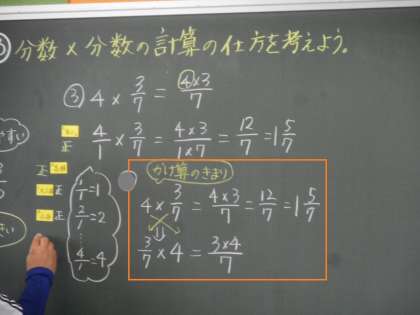 ③ 分数×分数の計算の仕方を考えよう。
③ 4 × 3/7 = ④×3/7
4/1 × 3/7 = 4×3/1×7 = 12/7 = 1 5/7
正
正
正
正
1/1 = 1
2/1 = 2
⋮
4/1 = 4
かけ算のきまり
4 × 3/7 = 4×3/7 = 12/7 = 1 5/7
3/7 × 4 = 3×4/7
やすい